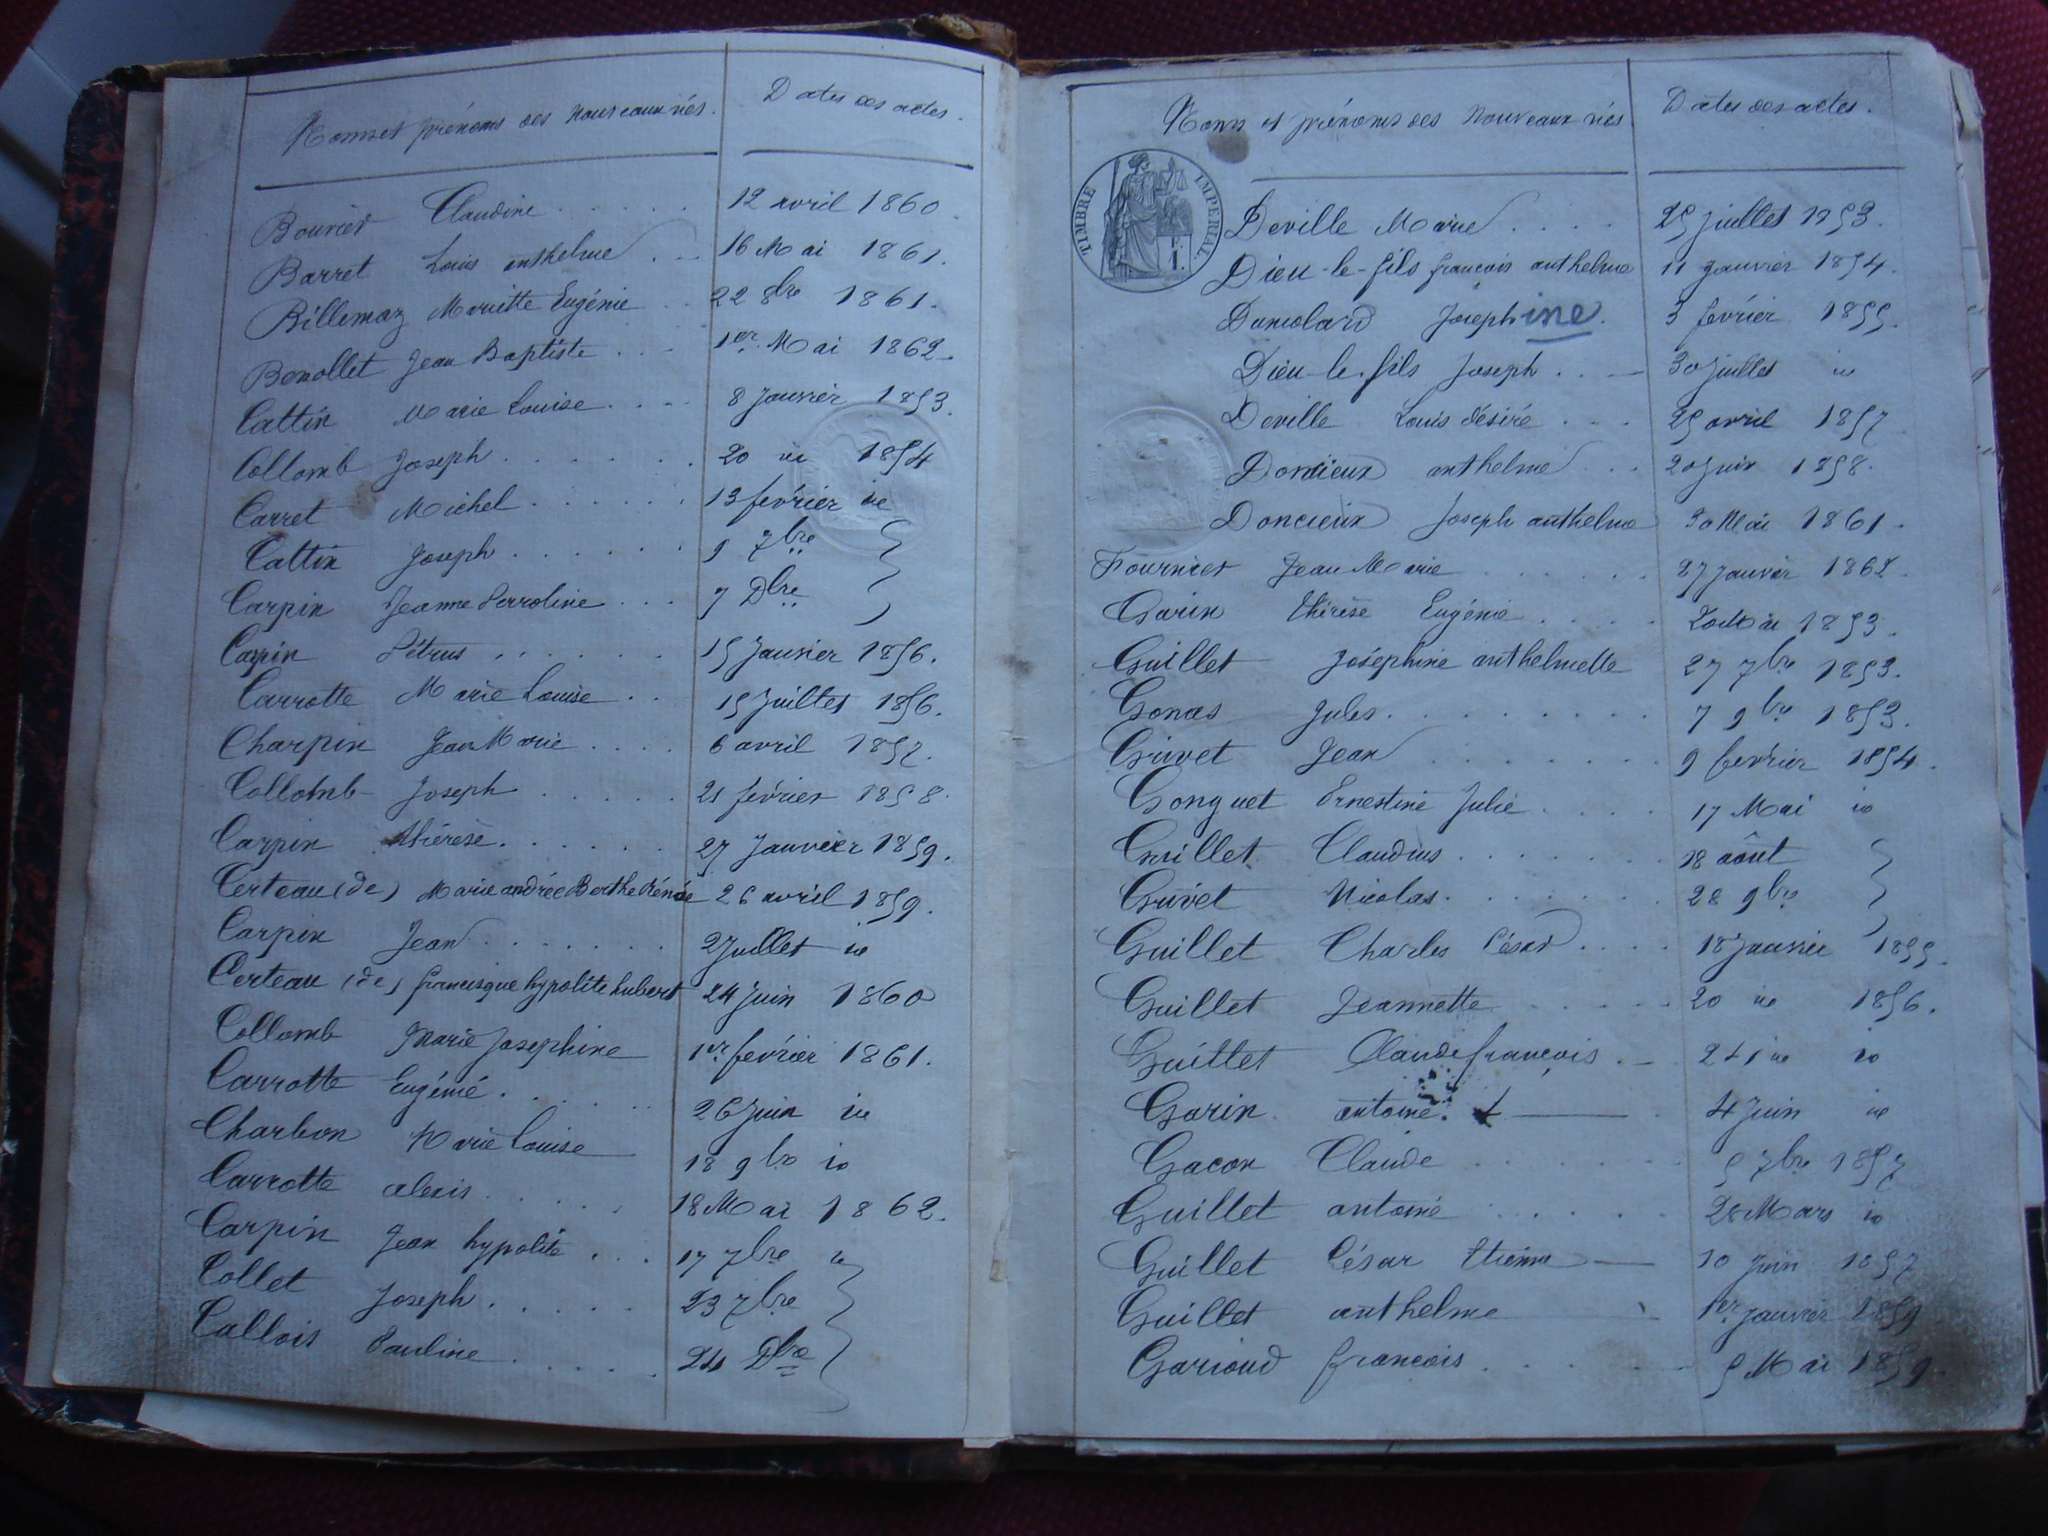 Noms et prénoms des nouveaux nés. Dates des actes.
Bouvier Claudine 12 avril 1860.
Barret Louis anthelme 16 Mai 1861.
Billemaz Mariette Eugénie 22 8bre 1861.
Benollet Jean Baptiste 1er Mai 1862.
Cattin Marie Louise 8 Janvier 1853.
Collomb Joseph 20 id 1854
Carret Michel 13 février id
Cattin Joseph 9 7bre
Carpin Jeanne Perroline 7 Dbre
Carpin Pétrus 15 Janvier 1856.
Carrotte Marie Louise 15 Juillet 1856.
Charpin Jean Marie 6 avril 1857.
Collomb Joseph 21 février 1858.
Carpin thérèse 27 Janvier 1859.
Certeau (de) Marie andrée Berthe Rénée 26 avril 1859.
Carpin Jean 2 Juillet id
Certeau (de) francisque hypolite hubert 24 Juin 1860
Collomb Marie Josephine 1er fevrier 1861.
Carrotte Eugénie 26 Juin id
Charbon Marie Louise 18 9bre id
Carrotte alexis 18 Mai 1862.
Carpin Jean hypolite 17 7bre id
Collet Joseph 23 7bre
Callois Pauline 24 Dbre
Noms et prénoms des nouveaux nés Dates des actes.
TIMBRE IMPERIAL
Deville Marie 25 Juillet 1853.
Dieu-le-fils françois anthelme 11 Janvier 1854.
Dumolard Josephine. 3 février 1855.
Dieu-le-fils Joseph 30 Juillet id
Deville Louis désiré 25 avril 1857
Doncieux anthelme 20 Juin 1858.
Doncieux Joseph anthelme 30 Mai 1861.
Fournier Jean Marie 27 Janvier 1862.
Garin thérèse Eugénie 20 Mai 1853.
Guillet Joséphine anthelmette 27 7bre 1853.
Gonas Jules 7 9bre 1853.
Grivet Jean 9 fevrier 1854.
Gonguet Ernestine Julie 17 Mai id
Guillet Claudius 18 août
Grivet Nicolas 28 9bre
Guillet Charles César 18 Janvier 1855.
Guillet Jeannette 20 id 1856.
Guillet Claude françois id id
Garin antoine 4 Juin id
Gacon Claude 5 7bre 1857
Guillet antoine 28 Mars id
Guillet César Etienne 10 Juin 1857
Guillet anthelme 1er Janvier 1859
Garioud françois 5 Mai 1859.